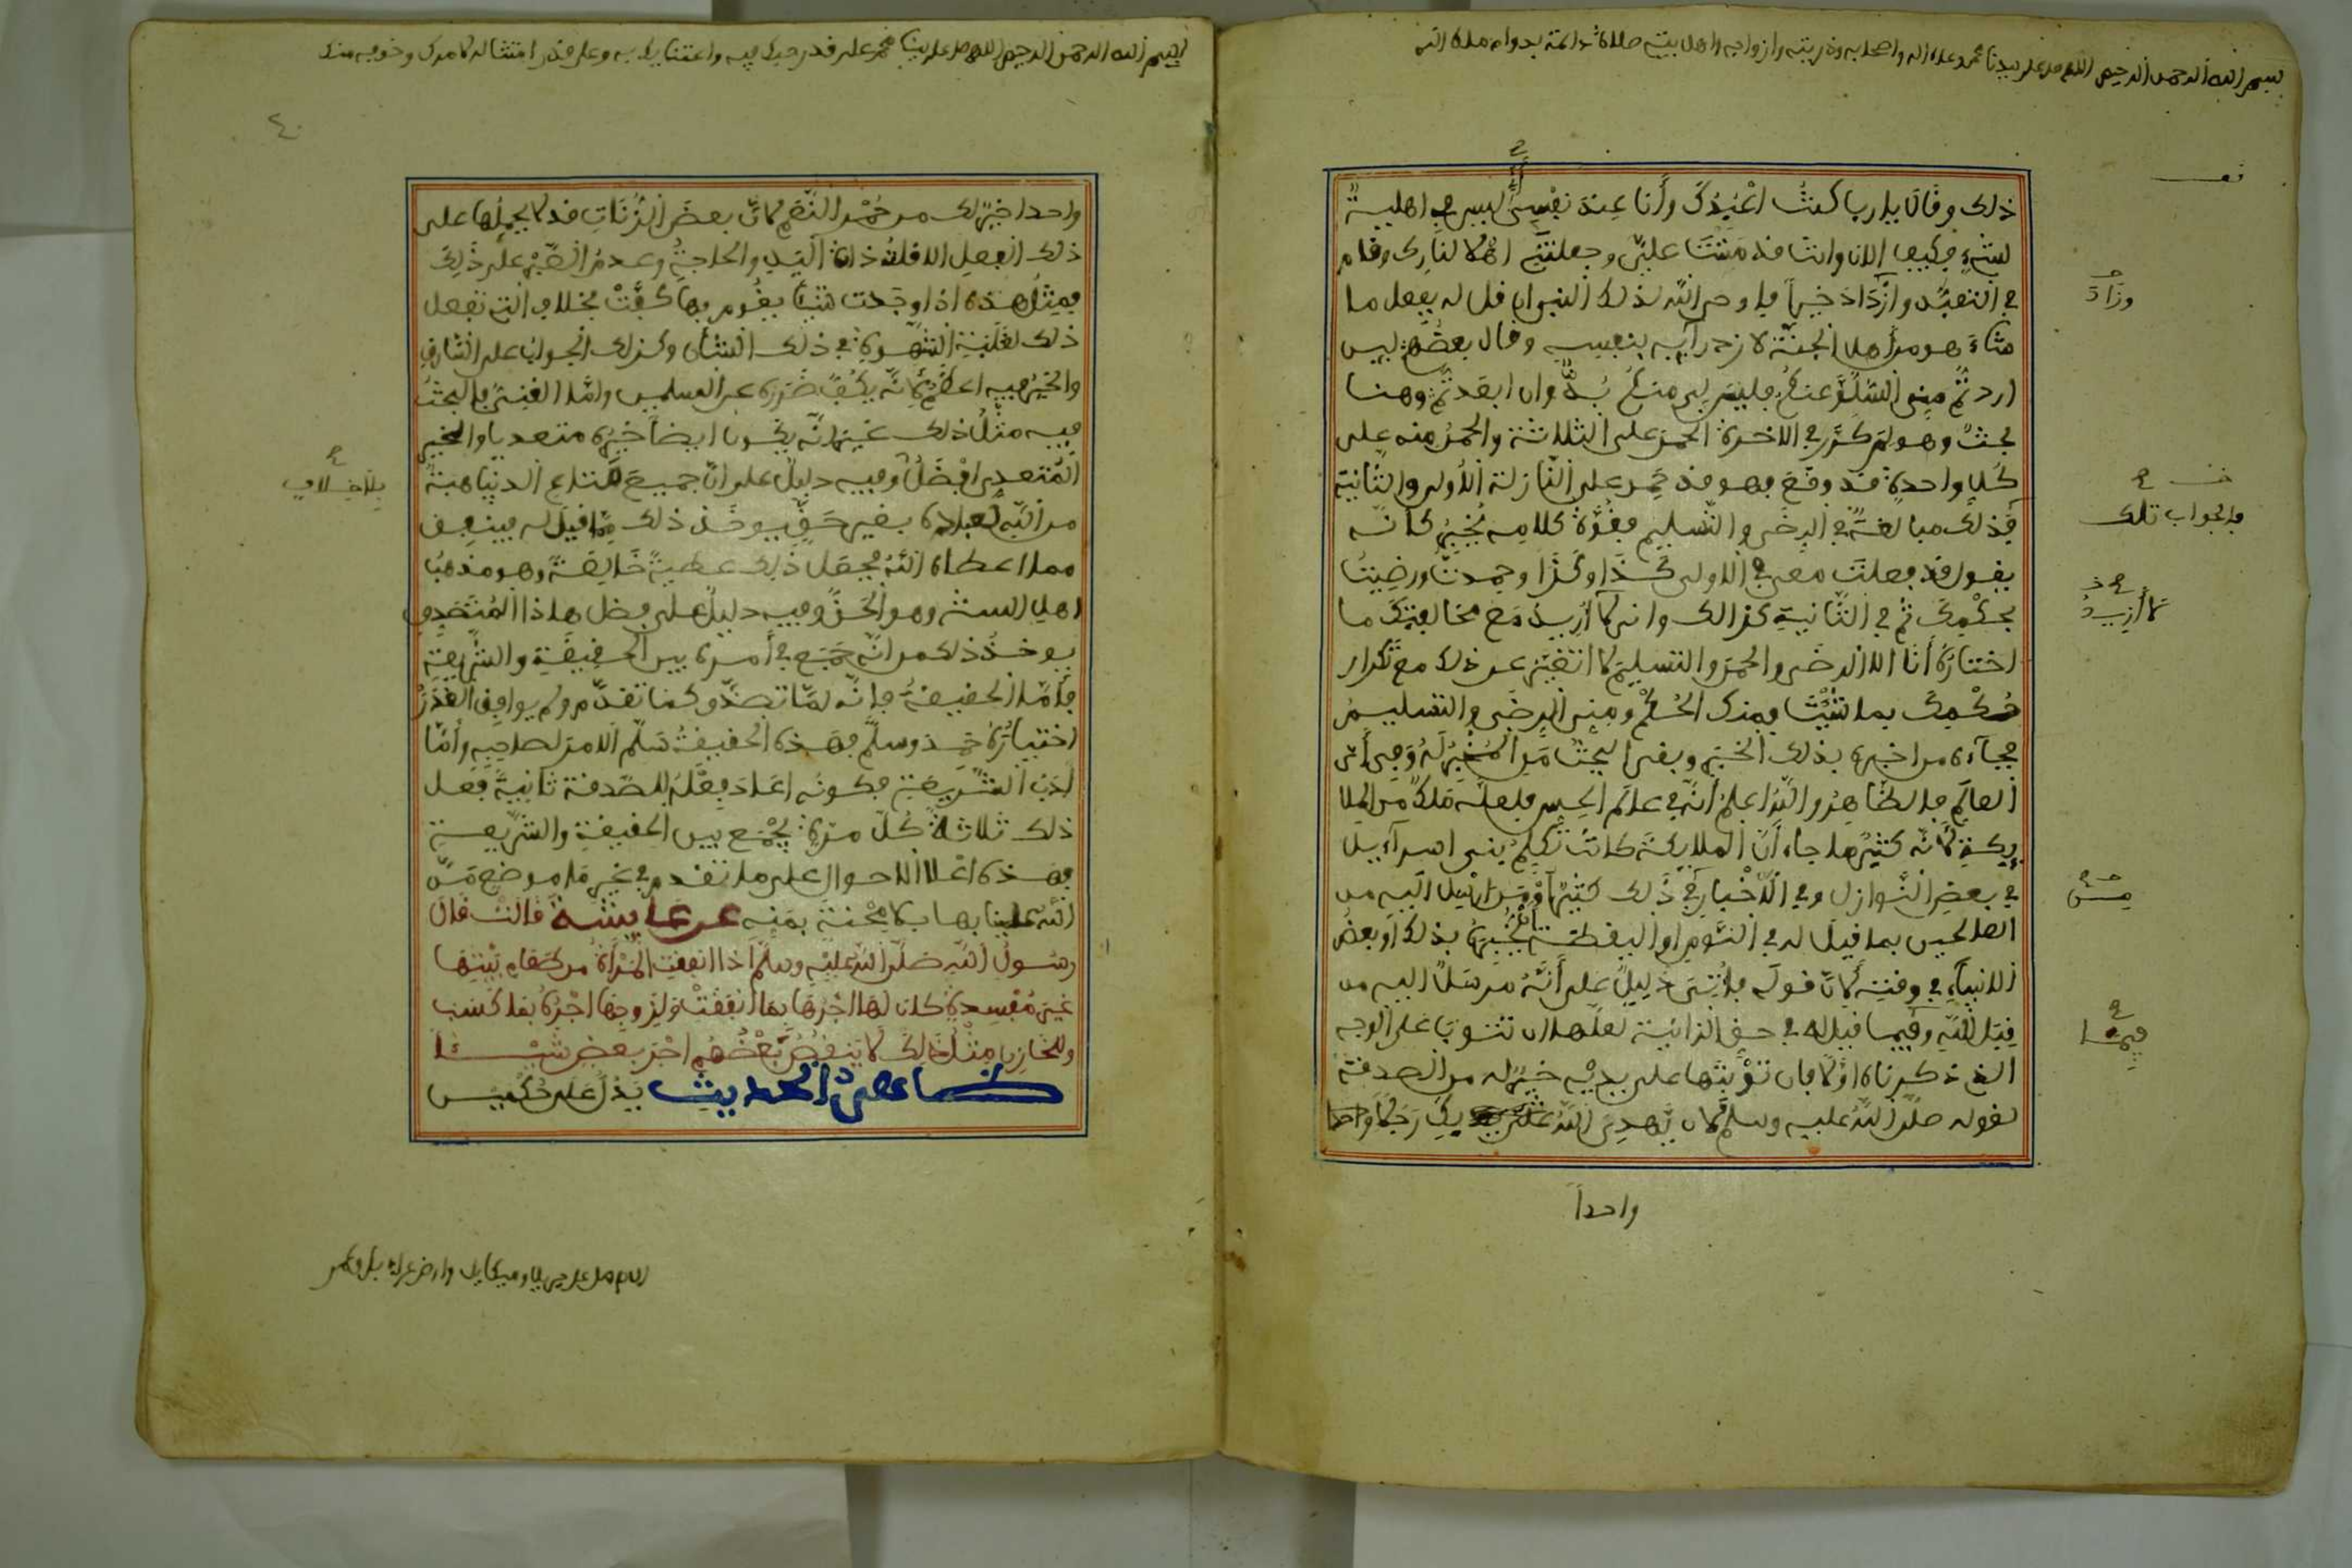 بسم الله الرحمن الرحيم اللهم صل على سيدنا محمد وعلى اله واصحابه وذريته وازواجه واهل بيته صلاة دائمة بدوام ملك الله
ذلك وقال يا رب كنت اعبدك وأنا عند نفسي أني ليس في اهلية
لشيء فكيف الان وانت قد مننت علي وجعلتني اهلا لنارك وقام
في التعبد وازداد خيرا فاوحى الله لذلك النبي ان قل له يفعل ما
شاء هو من أهل الجنة لازدرائه بنفسه وقال بعضهم ليس
اردتم مني السلو عنكم فليس لي منكم بد وان ابعدتم وهنا
بحث وهو لم كرر في الاخرة الحمد على الثلاثة والحمد منه على
كل واحدة قد وقع فهو قد حمد على النازلة الأولى والثانية
فذلك مبالغة في الرضى والتسليم فقوة كلامه تخبر كانه
يقول قد فعلت معي في الاولى كذا وكذا وحمدت ورضيت
بحكمك ثم في الثانية كذالك وانى لا أريد مع مخالفتك ما
اختارة أنا الا الرضى والحمد والتسليم لا اتغير عن ذلك مع تكرار
حكمك بما شئت فمنك الحكم ومني الرضى والتسليم
فجاءه من اخبره بذلك الخبر وبقى البحث من المخبر له ومن أي
العالم فالظاهر والله اعلم انه في عالم الحس فلعله ملك من الملا
يكة لانه كثير ما جاء أن الملايكة كانت تكلم بني اسراءيل
في بعض النوازل وفي الاخبار في ذلك كثير أو من ارسل اليه من
الصالحين بما قيل له في النوم او اليقظة أن يخبره بذلك أو بعض
الانبياء في وقته لان قوله فأتي دليل على أنه مرسل اليه من
قبل الله وفيما قيل له في حق الزانية لعلها ان تتوب على الوجه
الذي ذكرناه اولا فان توبتها على يديه خير له من الصدقة
لقوله صلى الله عليه وسلم لان يهدي الله على يديك رجلا واحدا
واحدا
وزاد
فالجواب تلك
لا أريد
من
فيما
بسم الله الرحمن الرحيم اللهم صل على نبينا محمد على قدر حبك فيه واعتنايك به وعلى قدر امتثاله لامرك وخوفه منك
٤٠
واحدا خير لك من حمر النعم لان بعض الزنات قد لا يحملها على
ذلك الفعل الا قلة ذات اليد والحاجة وعدم الصبر على ذلك
فمثل هذه اذا وجدت شيئا يقوم بها كفت بخلاف التي تفعل
ذلك لغلبة الشهوة في ذلك الشان وكذلك الجواب على السارق
والخير فيه اعظم لانه يكف ضرره عن المسلمين واما الغني فالبحث
فيه مثل ذلك غير انه يكون ايضا خيره متعديا والخير
المتعدي افضل وفيه دليل على ان جميع متاع الدنيا هبة
من الله لعباده بغير حق يوخذ ذلك مما قيل له فينفق
مما اعطاه الله فجعل ذلك عطية خالصة وهو مذهب
اهل السنة وهو الحق وفيه دليل على فضل هاذا المتصدق
يوخذ ذلك من انه جمع في أمره بين الحقيقة والشريعة
فأما الحقيقة فانه لما تصدق كما تقدم ولم يوافق القدر
اختياره حمد وسلم فهذه الحقيقة سلم الامر لصاحبه وأما
أدب الشريعة فكونه اعاد فعله للصدقة ثانية ففعل
ذلك ثلاثة كل مرة يجمع بين الحقيقة والشريعة
فهذه اعلا الاحوال على ما تقدم في غير ما موضع من
الله علينا بها بلا محنة بمنه عن عايشة قالت قال
رسول الله صلى الله عليه وسلم اذا انفقت المرأة من طعام بيتها
غير مفسدة كان لها اجرها بما انفقت ولزوجها اجره بما كسب
وللخازن مثل ذالك لا ينقص بعضهم اجر بعض شيئا
ظاهر الحديث يدل على حكمين
بلا خلاف
اللهم صل على جبريل وميكايل